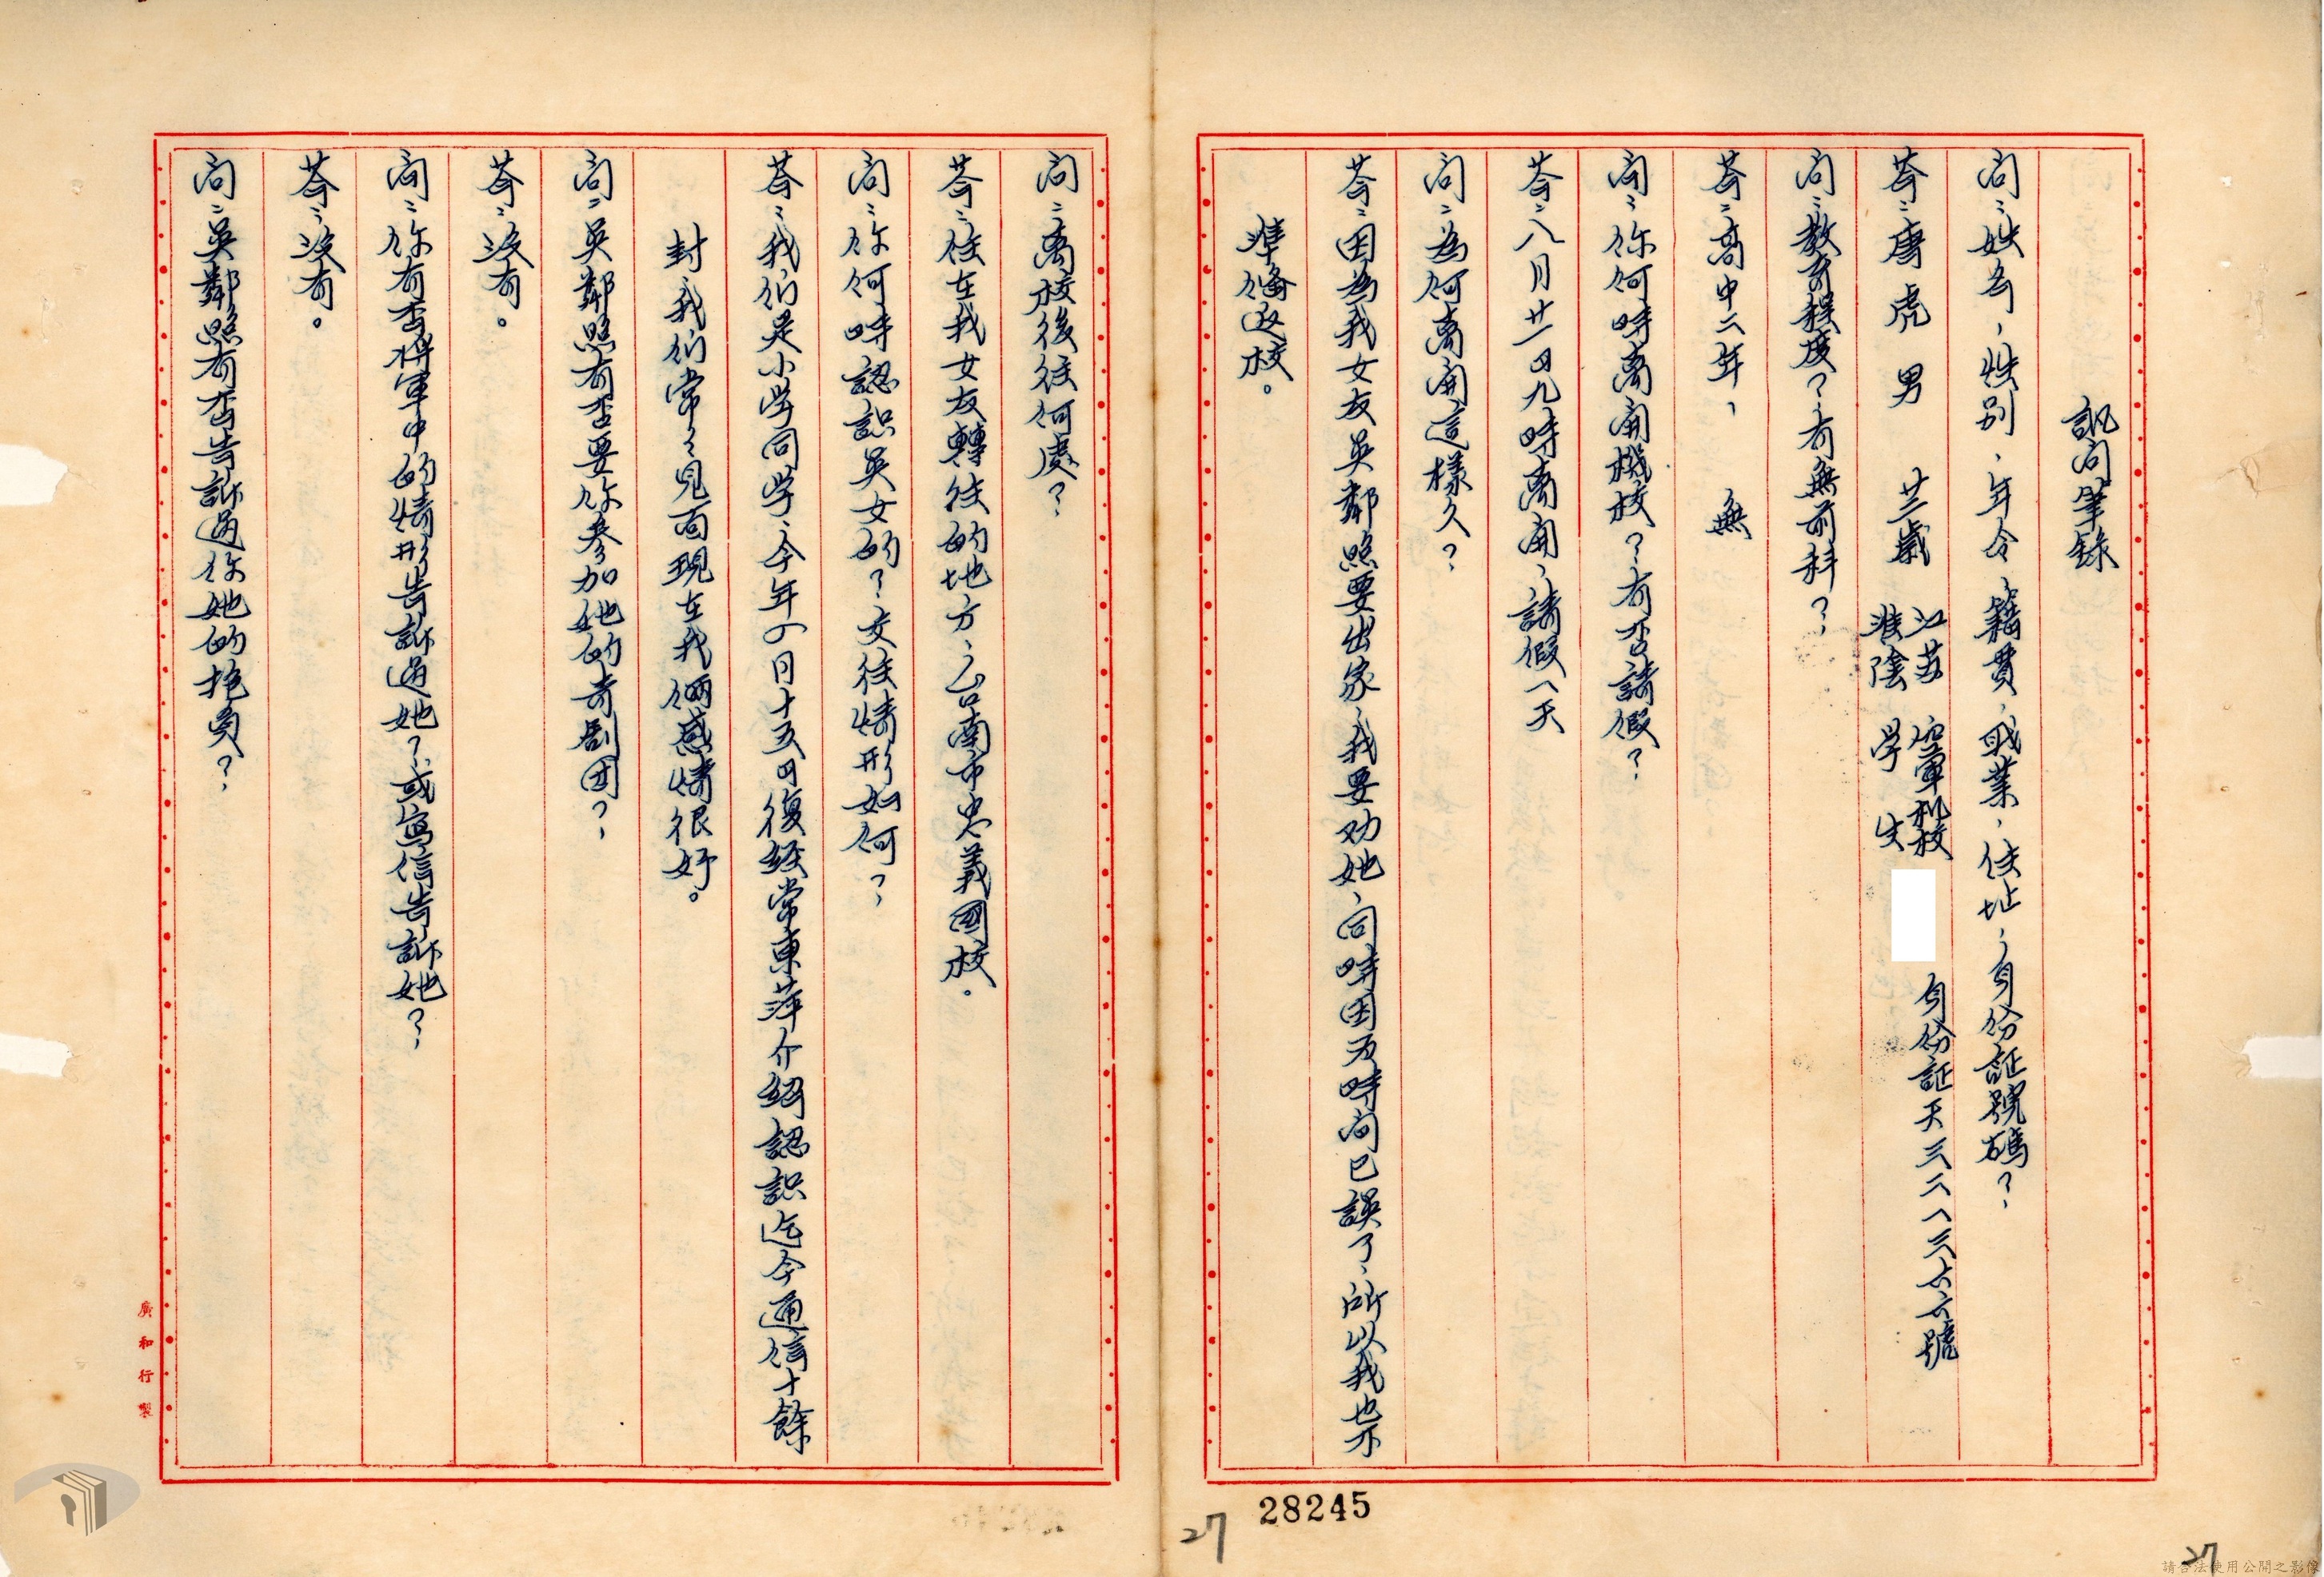 訊問筆錄
問：姓名，性别、年令、籍貫，職業，住址，身份証號碼？
答：唐虎 男 廿三歲 江苏淮陰 空軍机校学生 身份証天三二八三六六號
問：教育程度？有無前科？
答：高中二年， 無
問：你何時离開機校？有否請假？
答：八月廿一日九時离開，請假八天
問：為何离開這樣久？
答：因為我女友吳鄰照要出家，我要劝她，同時因为時间已誤了，所以我也不
準俻返校。
問：离校後往何處？
答：住在我女友轉往的地方，台南市忠義國校。
問：你何時認識吳女的？交往情形如何？
答：我们是小学同学，今年四月十五日復經常東萍介紹認識迄今通信十餘
封我们常々見面現在我俩感情很好。
問：吳鄰照有否要你参加她的奇劇团？
答：沒有。
問：你有否将軍中的情形告訴過她？或寫信告訴她？
答：沒有。
問：吳鄰照有否告訴過你她的抱負？
廣和行製
28245
27
27
請合法使用公開之影像